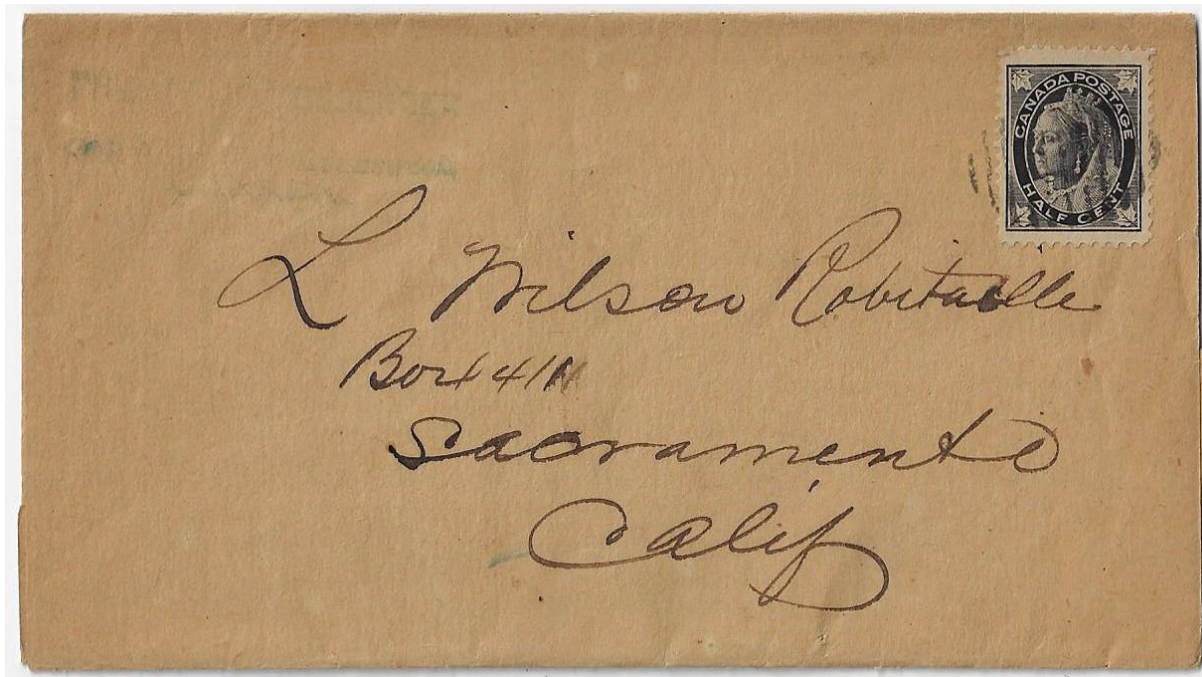 CANADA POSTAGE
HALF CENT
L Wilson Robitaille
Box 411
Sacramento
Calif